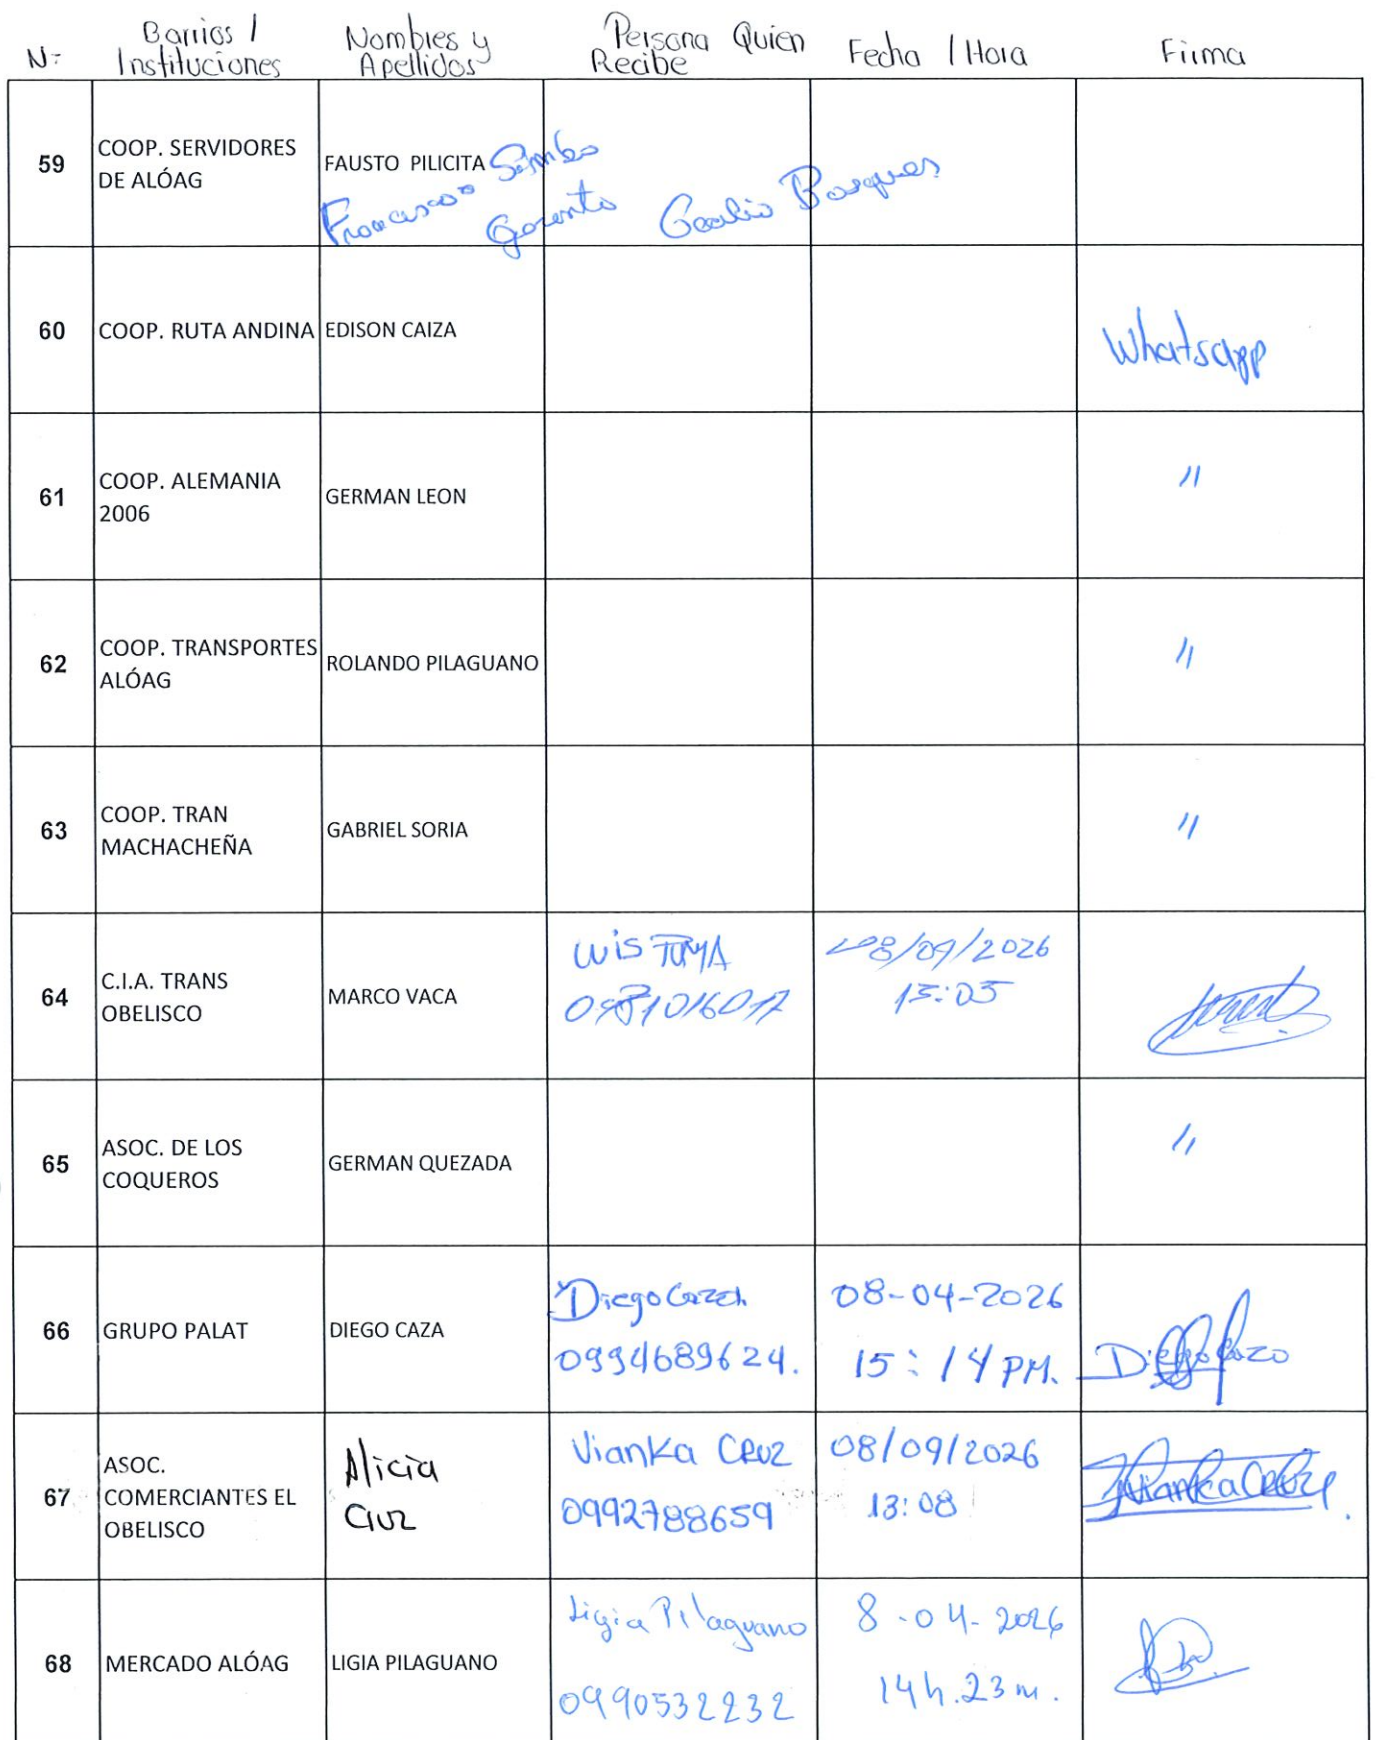 N:
Barrios /
Instituciones
Nombres y
Apellidos
Persona Quien
Recibe
Fecha / Hora
Firma
59
COOP. SERVIDORES
DE ALÓAG
FAUSTO PILICITA
Gerente
60
COOP. RUTA ANDINA
EDISON CAIZA
Whatsapp
61
COOP. ALEMANIA
2006
GERMAN LEON
"
62
COOP. TRANSPORTES
ALÓAG
ROLANDO PILAGUANO
"
63
COOP. TRAN
MACHACHEÑA
GABRIEL SORIA
"
64
C.I.A. TRANS
OBELISCO
MARCO VACA
08/09/2026
15:05
65
ASOC. DE LOS
COQUEROS
GERMAN QUEZADA
"
66
GRUPO PALAT
DIEGO CAZA
Diego Caza
0994689624.
08-04-2026
15:14 PM.
Diego Cazo
67
ASOC.
COMERCIANTES EL
OBELISCO
Alicia
Cruz
Vianka Cruz
0992788659
08/09/2026
13:08
Vianka Cruz
68
MERCADO ALÓAG
LIGIA PILAGUANO
Ligia Pilaguano
0990532232
8-04-2026
14h.23m.